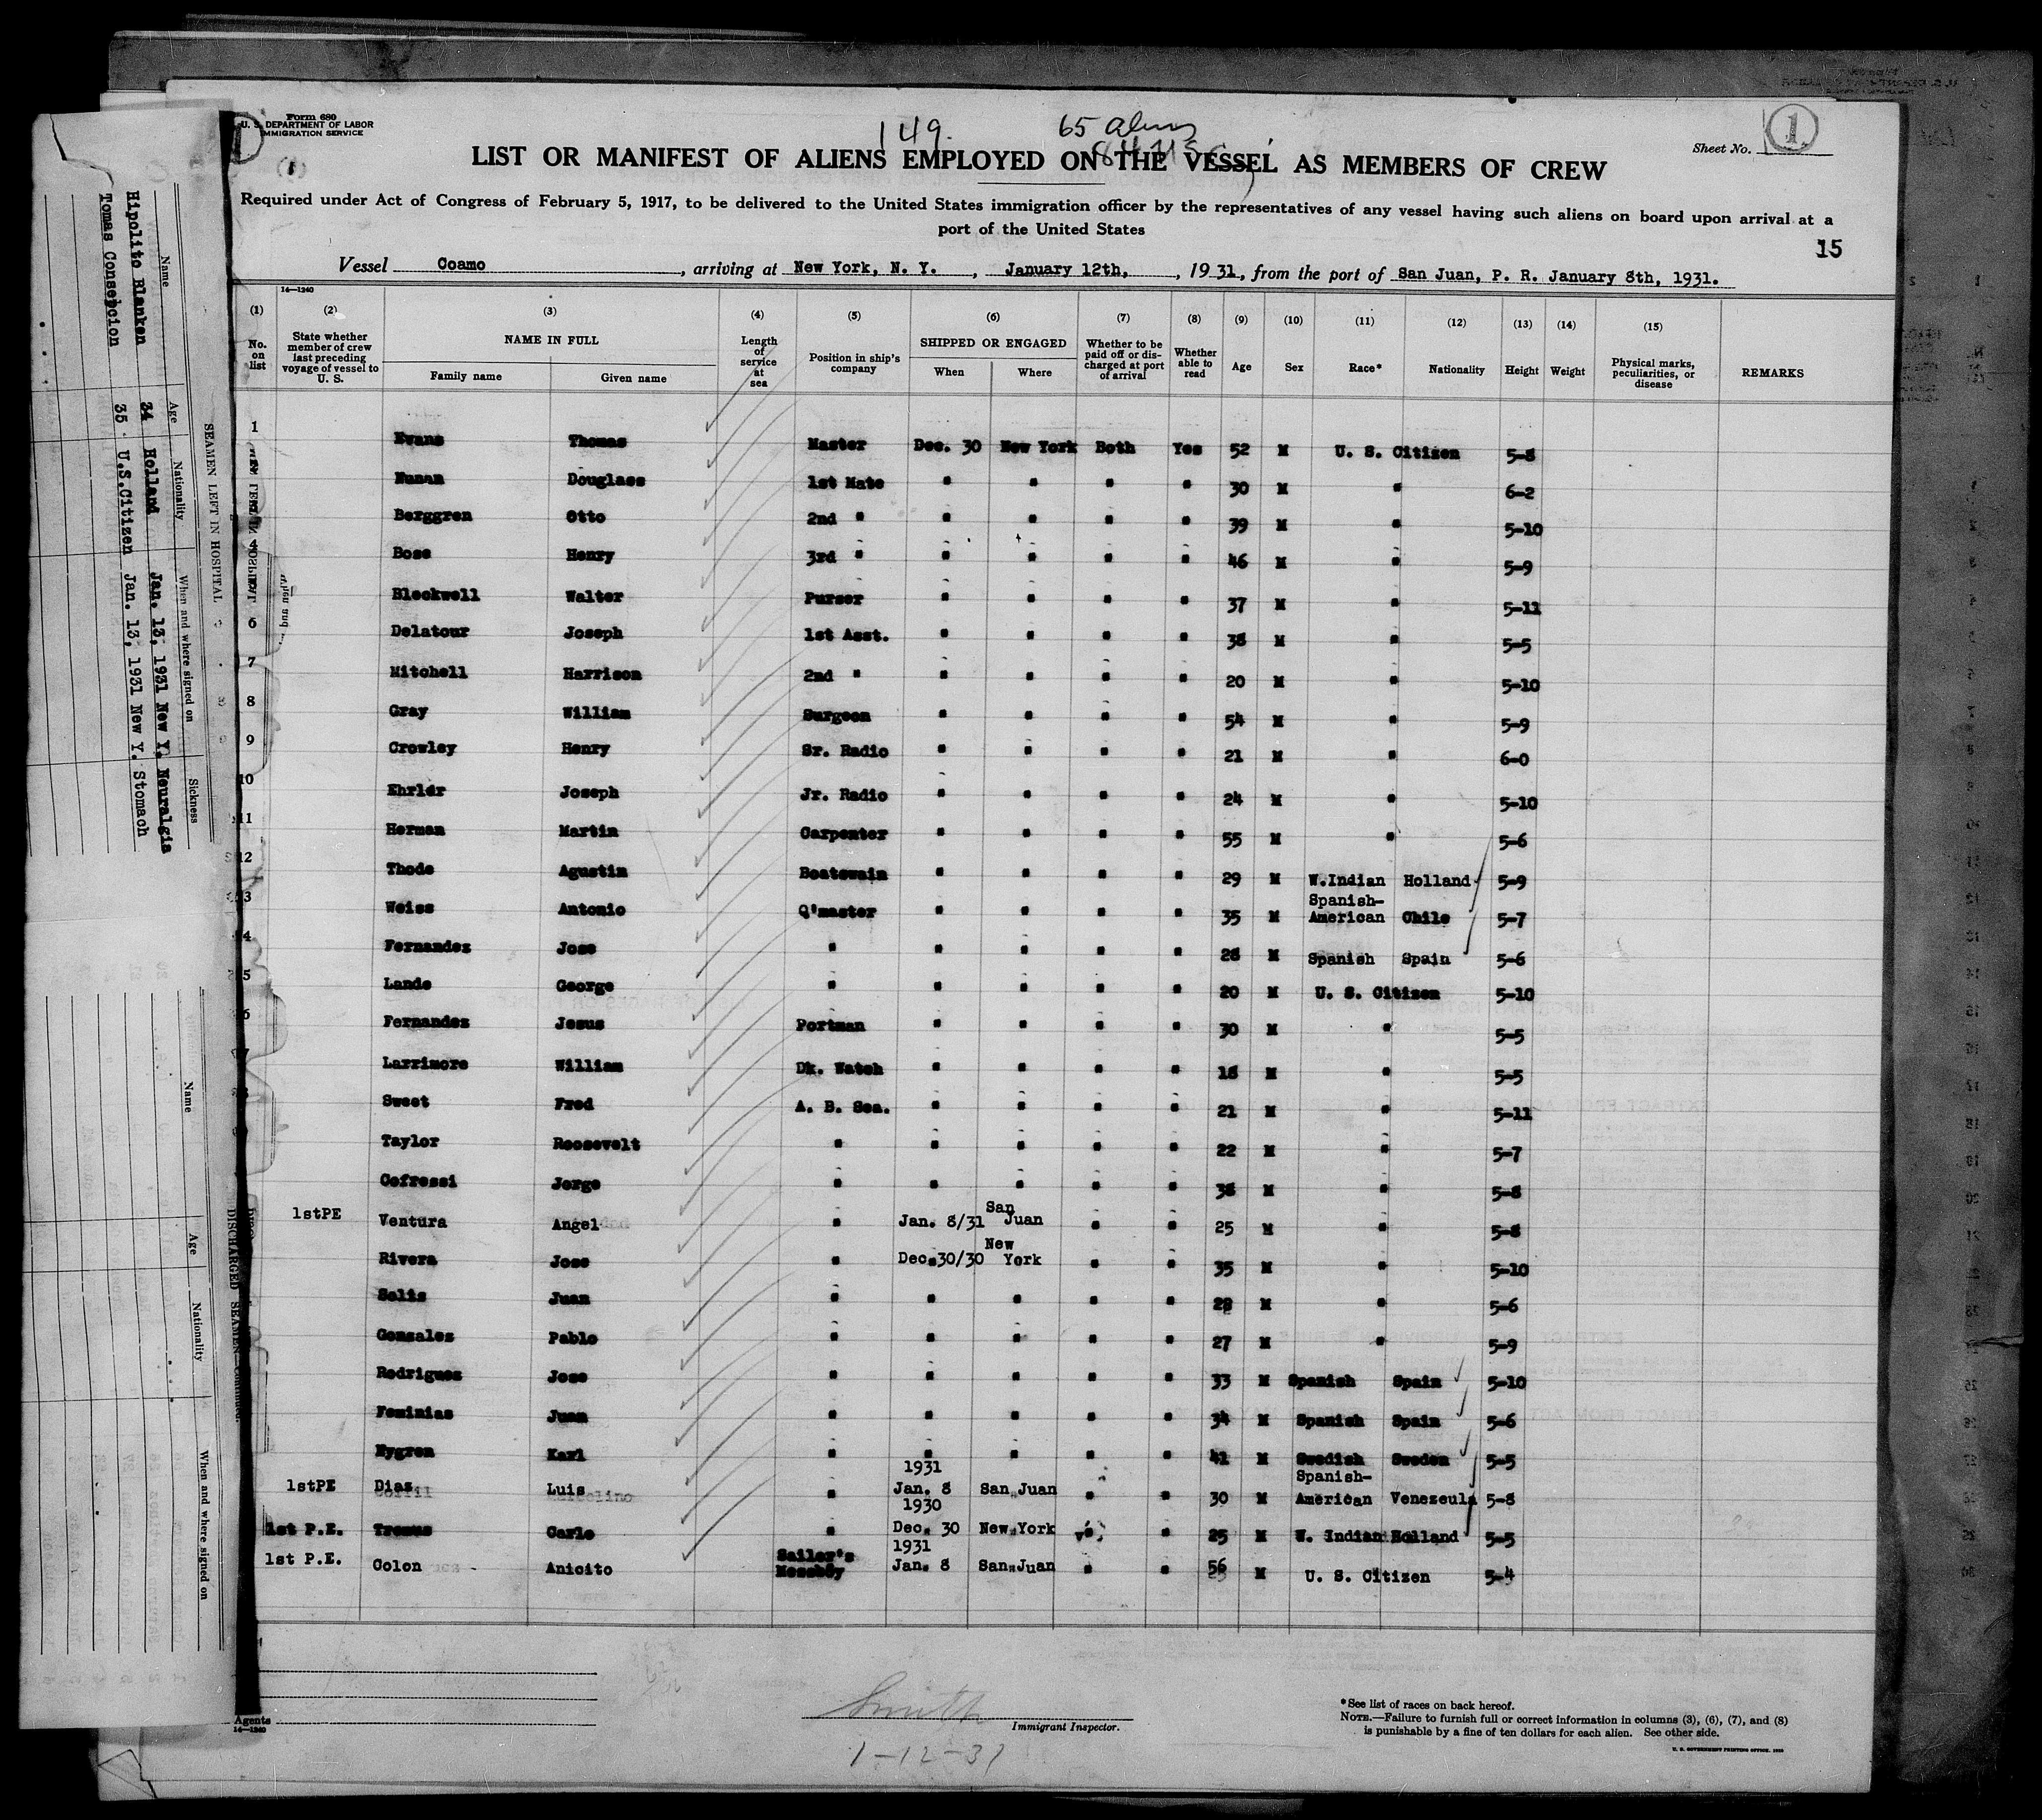 Form 680
U. S. DEPARTMENT OF LABOR
IMMIGRATION SERVICE
149.
65 Aliens
Sheet No. 1
LIST OR MANIFEST OF ALIENS EMPLOYED ON THE VESSEL AS MEMBERS OF CREW
Required under Act of Congress of February 5, 1917, to be delivered to the United States immigration officer by the representatives of any vessel having such aliens on board upon arrival at a
port of the United States
15
Vessel Coamo, arriving at New York, N. Y., January 12th, , 1931, from the port of San Juan, P. R. January 8th, 1931.
14—1240
(1) (2) (3) (4) (5) (6) (7) (8) (9) (10) (11) (12) (13) (14) (15)
No. on list
State whether member of crew last preceding voyage of vessel to U. S.
NAME IN FULL
Family name Given name
Length of service at sea
Position in ship's company
SHIPPED OR ENGAGED
When Where
Whether to be paid off or discharged at port of arrival
Whether able to read
Age Sex Race* Nationality Height Weight
Physical marks, peculiarities, or disease
REMARKS
1 Evans Thomas Master Dec. 30 New York Both Yes 52 M U. S. Citizen 5-8
Nunan Douglass 1st Mate " " " " 30 M " 6-2
Berggren Otto 2nd " " " " " 39 M " 5-10
4 Bose Henry 3rd " " " " " 46 M " 5-9
Blockwell Walter Purser " " " " 37 M " 5-11
6 Delatour Joseph 1st Asst. " " " " 38 M " 5-5
7 Mitchell Harrison 2nd " " " " " 20 M " 5-10
8 Gray William Surgeon " " " " 54 M " 5-9
9 Crowley Henry Sr. Radio " " " " 21 M " 6-0
10 Ehrler Joseph Jr. Radio " " " " 24 M " 5-10
11 Herman Martin Carpenter " " " " 55 M " 5-6
12 Thode Agustin Boatswain " " " " 29 M W.Indian Holland 5-9
13 Weiss Antonio Q'master " " " " 35 M Spanish-American Chile 5-7
4 Fernandez Jose " " " " " 28 M Spanish Spain 5-6
5 Lande George " " " " " 20 M U. S. Citizen 5-10
6 Fernandez Jesus Portman " " " " 30 M " 5-5
7 Larrimore William Dk. Watch " " " " 18 M " 5-5
Sweet Fred A. B. Sea. " " " " 21 M " 5-11
Taylor Roosevelt " " " " " 22 M " 5-7
Cofressi Jorge " " " " " 38 M " 5-8
1stPE Ventura Angel " Jan. 8/31 San Juan " " 25 M " 5-8
Rivera Jose " Dec.30/30 New York " " 35 M " 5-10
Solis Juan " " " " " 28 M " 5-6
Gonzales Pablo " " " " " 27 M " 5-9
Rodriguez Jose " " " " " 33 M Spanish Spain 5-10
Feminias Juan " " " " " 34 M Spanish Spain 5-6
Nygren Karl " " " " " 41 M Swedish Sweden 5-5
1stPE Diaz Luis " 1931 Jan. 8 San Juan " " 30 M Spanish-American Venezeula 5-8
1st P.E. Tromus Carlo " 1930 Dec. 30 New York " " 25 M W. Indian Holland 5-5
1st P.E. Colon Anicito Sailor's Messboy 1931 Jan. 8 San Juan " " 56 M U. S. Citizen 5-4
Agents
14—1240
Smith
Immigrant Inspector.
1-12-31
*See list of races on back hereof.
NOTE.—Failure to furnish full or correct information in columns (3), (6), (7), and (8)
is punishable by a fine of ten dollars for each alien. See other side.
U. S. GOVERNMENT PRINTING OFFICE.
SEAMEN LEFT IN HOSPITAL
Name Age Nationality When and where signed on Sickness
Hipolito Blanken 34 Holland Jan. 13, 1931 New Y. Neuralgia
Tomas Consepcion 35 U.S.Citizen Jan. 13, 1931 New Y. Stomach
DISCHARGED SEAMEN—Continued.
Name Age Nationality When and where signed on